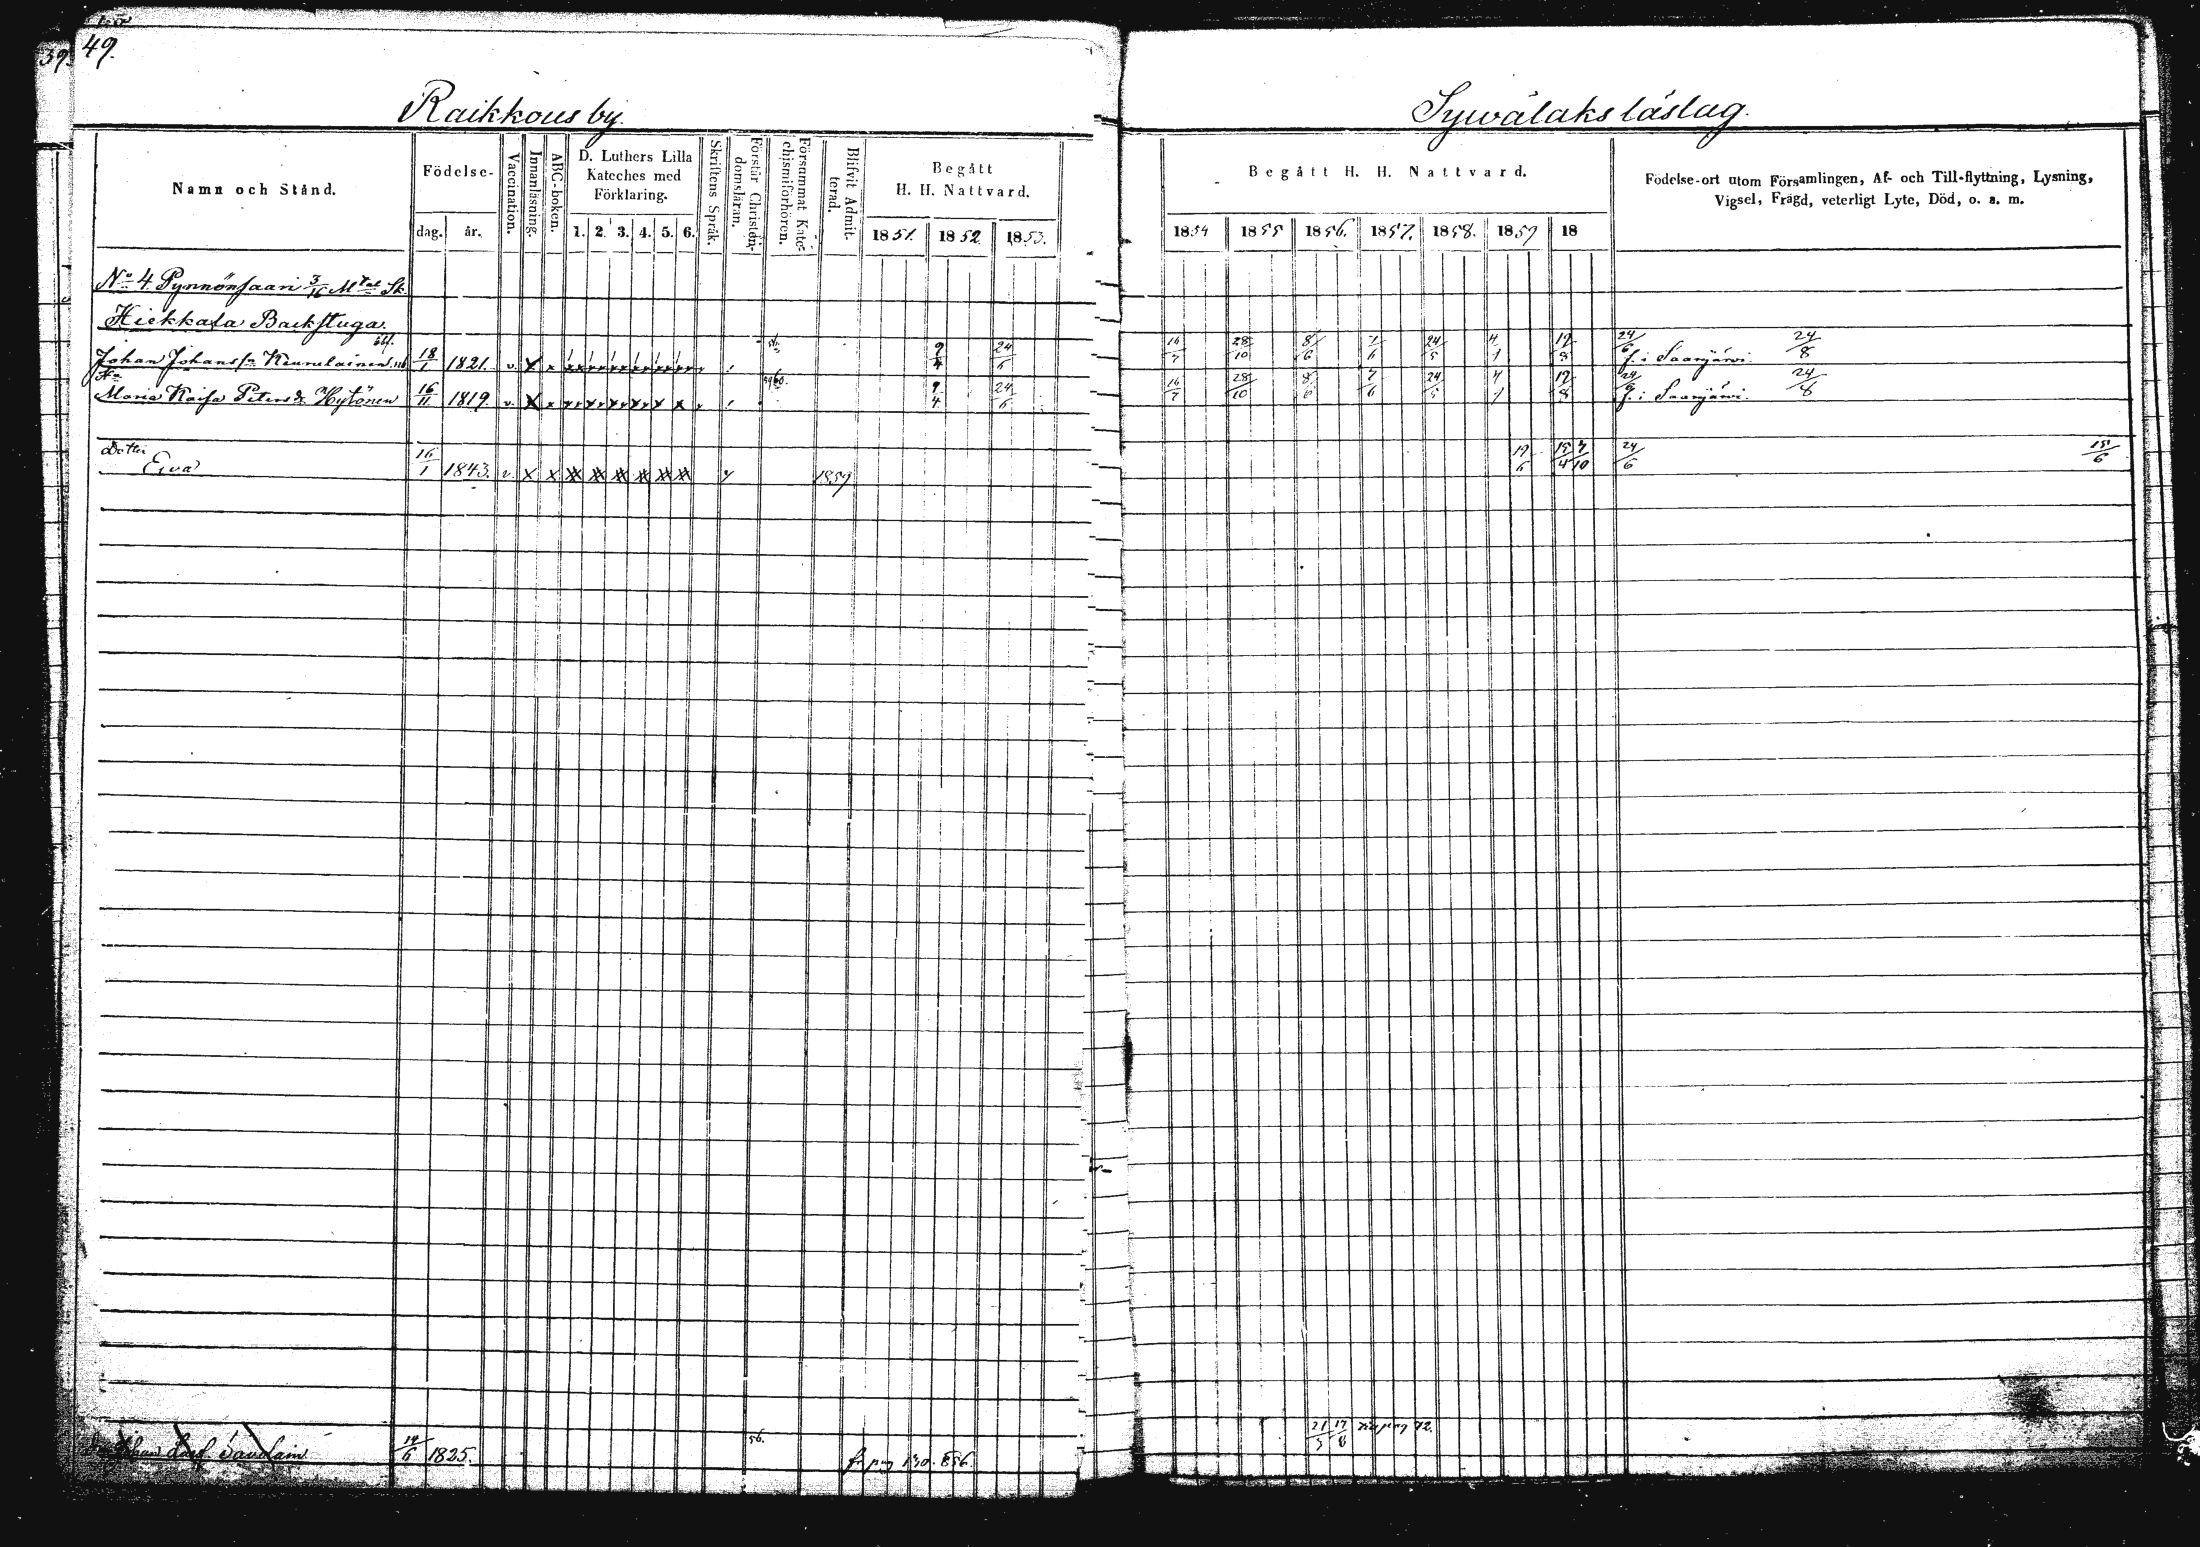 39.
49.
Raikkous by.
Namn och Stånd.
Födelse-
dag.
år.
Vaccination.
Innanläsning.
ABC-boken.
D. Luthers Lilla
Kateches med
Förklaring.
1. 2. 3. 4. 5. 6.
Skriftens Språk.
Förstår Christen-
domsläran.
Försummat Kate-
chismiförhören.
Blifvit Admit-
terad.
Begått
H. H. Nattvard.
1851. 1852. 1853.
No 4 Pynnönsaari 3/16 Mtal Sk.
Hiekkala Backstuga.
Johan Johansson Kinnulainen 18/1 1821. v. 9/4 24/6
Hu
Maria Kaisa Petersdr Hytönen 16/11 1819. v. 9/4 24/6
Dotter
Eva 16/1 1843. v. x x 1859
19/6 1825. 56. fr pag 130. 856.
Sywälaks läslag.
Begått H. H. Nattvard.
1854 1855 1856. 1857. 1858. 1859 18
Födelse-ort utom Församlingen, Af- och Till-flyttning, Lysning,
Vigsel, Frägd, veterligt Lyte, Död, o. s. m.
16/7 28/10 8/6 7/6 24/5 19/8 24/6 f. i Saarijärvi. 24/8
16/7 28/10 8/6 7/6 24/5 19/8 24/6 f. i Saarijärvi. 24/8
19/6 15/4 7/10 24/6 15/6
21/5 17/8 till pag 72.